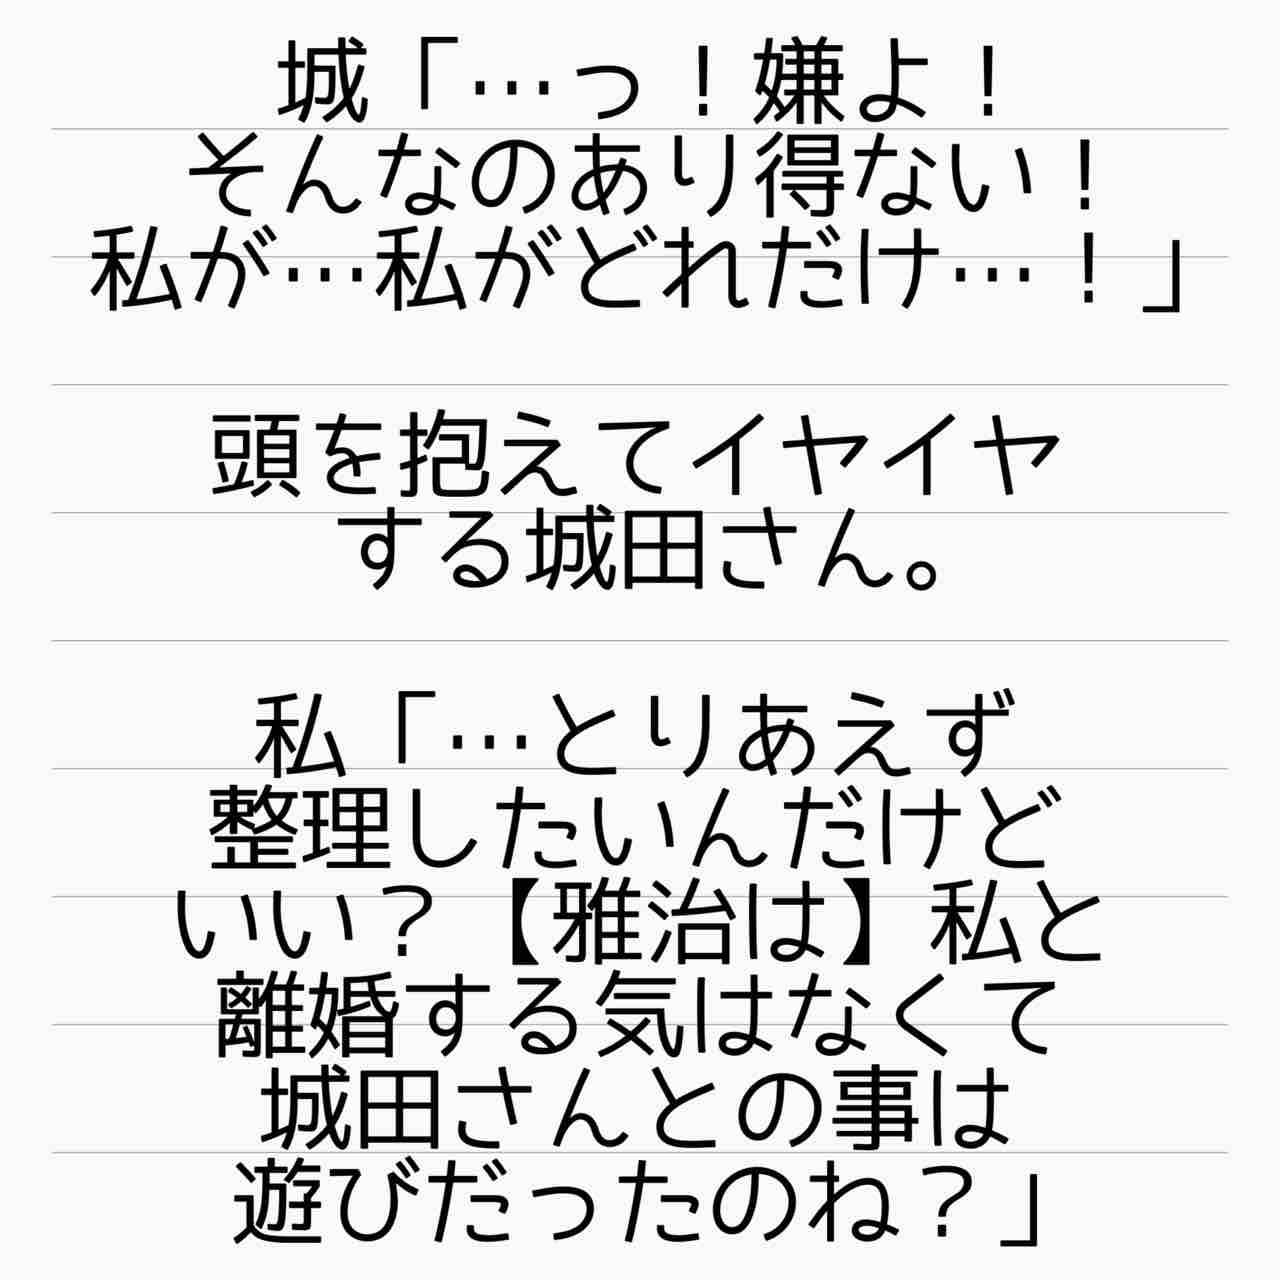 城「…っ！嫌よ！
そんなのあり得ない！
私が…私がどれだけ…！」
頭を抱えてイヤイヤ
する城田さん。
私「…とりあえず
整理したいんだけど
いい？【雅治は】私と
離婚する気はなくて
城田さんとの事は
遊びだったのね？」